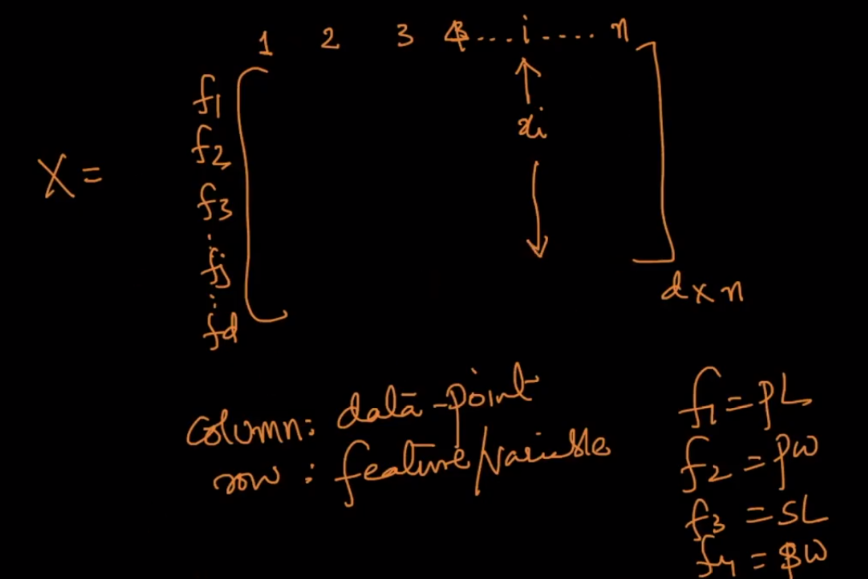 1 2 3 4...i....n
f1
f2
xi
X=
f3
:
fj
:
fd
d x n
column: data-point
row: feature/variable
f1=PL
f2=PW
f3=SL
f4=SW